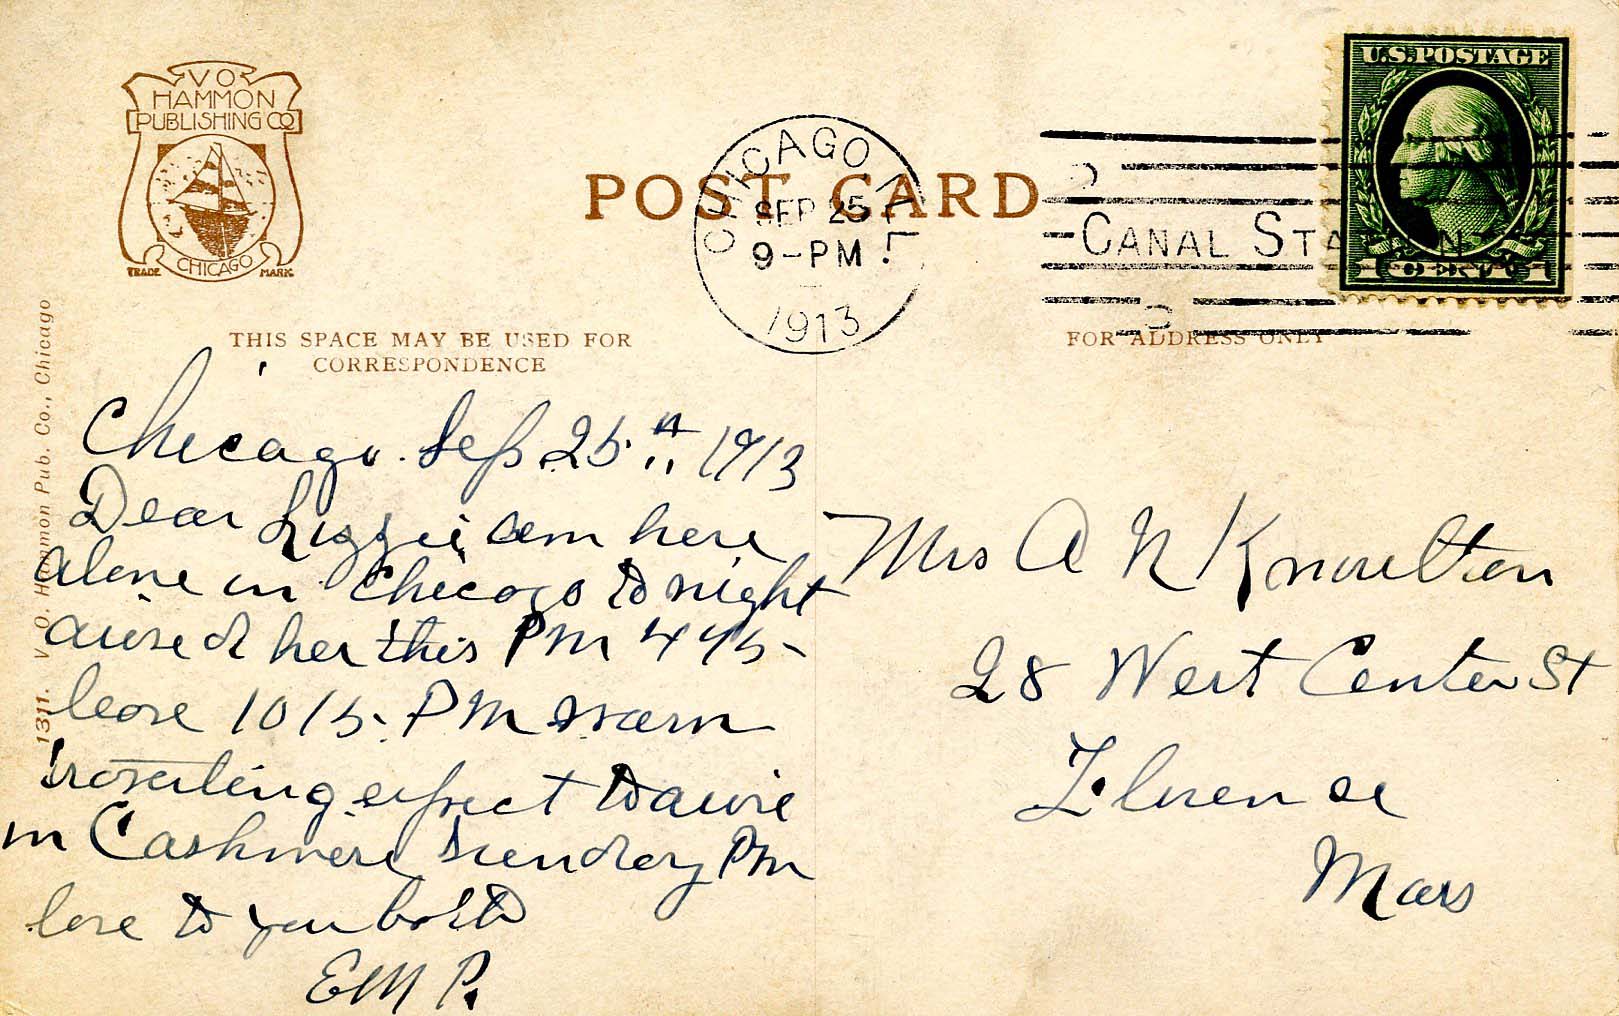 V O
HAMMON
PUBLISHING CO
CHICAGO
TRADE MARK
POST CARD
CHICAGO, ILL.
SEP 25
9-PM
1913
CANAL STATION
U.S. POSTAGE
1 CENT 1
THIS SPACE MAY BE USED FOR
CORRESPONDENCE
FOR ADDRESS ONLY
1311. V. O. Hammon Pub. Co., Chicago
Chicago. Sep. 25th 1913
Dear Lizzie am here
alone in Chicago to night
arived her this PM 445-
leave 1015. PM warm
traveling expect to arive
in Cashmere Sunday PM
love to you both
EM P.
Mrs A N Knowlton
28 West Center St
Florence
Mass